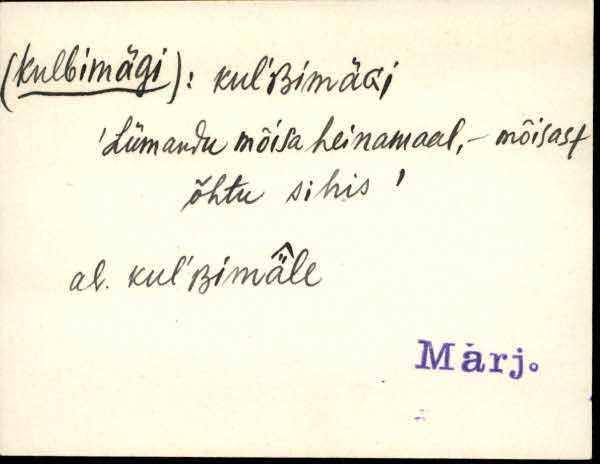 (kulbimägi): kul'ʙimäɢi
'Lümandu mõisa heinamaal, – mõisast
õhtu sihis'
al. kul'ʙimä̂le
Märj.